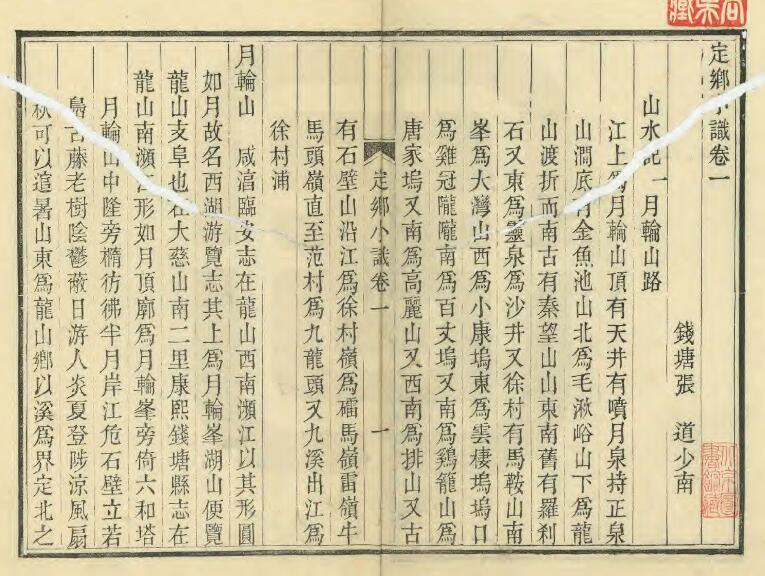 定鄉小識卷一
錢塘張 道少南
山水記一 月輪山路
江上爲月輪山頂有天井有噴月泉持正泉
山澗底有金魚池山北爲毛湫峪山下爲龍
山渡折而南古有秦望山山東南舊有羅刹
石又東爲靈泉爲沙井又徐村有馬鞍山南
峯爲大灣山西爲小康塢東爲雲棲塢塢口
爲雞冠隴隴南爲百丈塢又南爲鷄籠山爲
唐家塢又南爲高麗山又西南爲排山又古
定鄉小識卷一 一
有石壁山沿江爲徐村嶺爲礌馬嶺雷嶺牛
馬頭嶺直至范村爲九龍頭又九溪出江爲
徐村浦
月輪山 咸淳臨安志在龍山西南瀕江以其形圓
如月故名西湖游覽志其上爲月輪峯湖山便覽
龍山支阜也在大慈山南二里康熙錢塘縣志在
龍山南瀕江形如月頂廓爲月輪峯旁倚六和塔
月輪山中隆旁橢彷彿半月岸江危石壁立若
鳧古藤老樹陰鬱蔽日游人炎夏登陟涼風扇
秋可以逭暑山東爲龍山鄉以溪爲界定北之